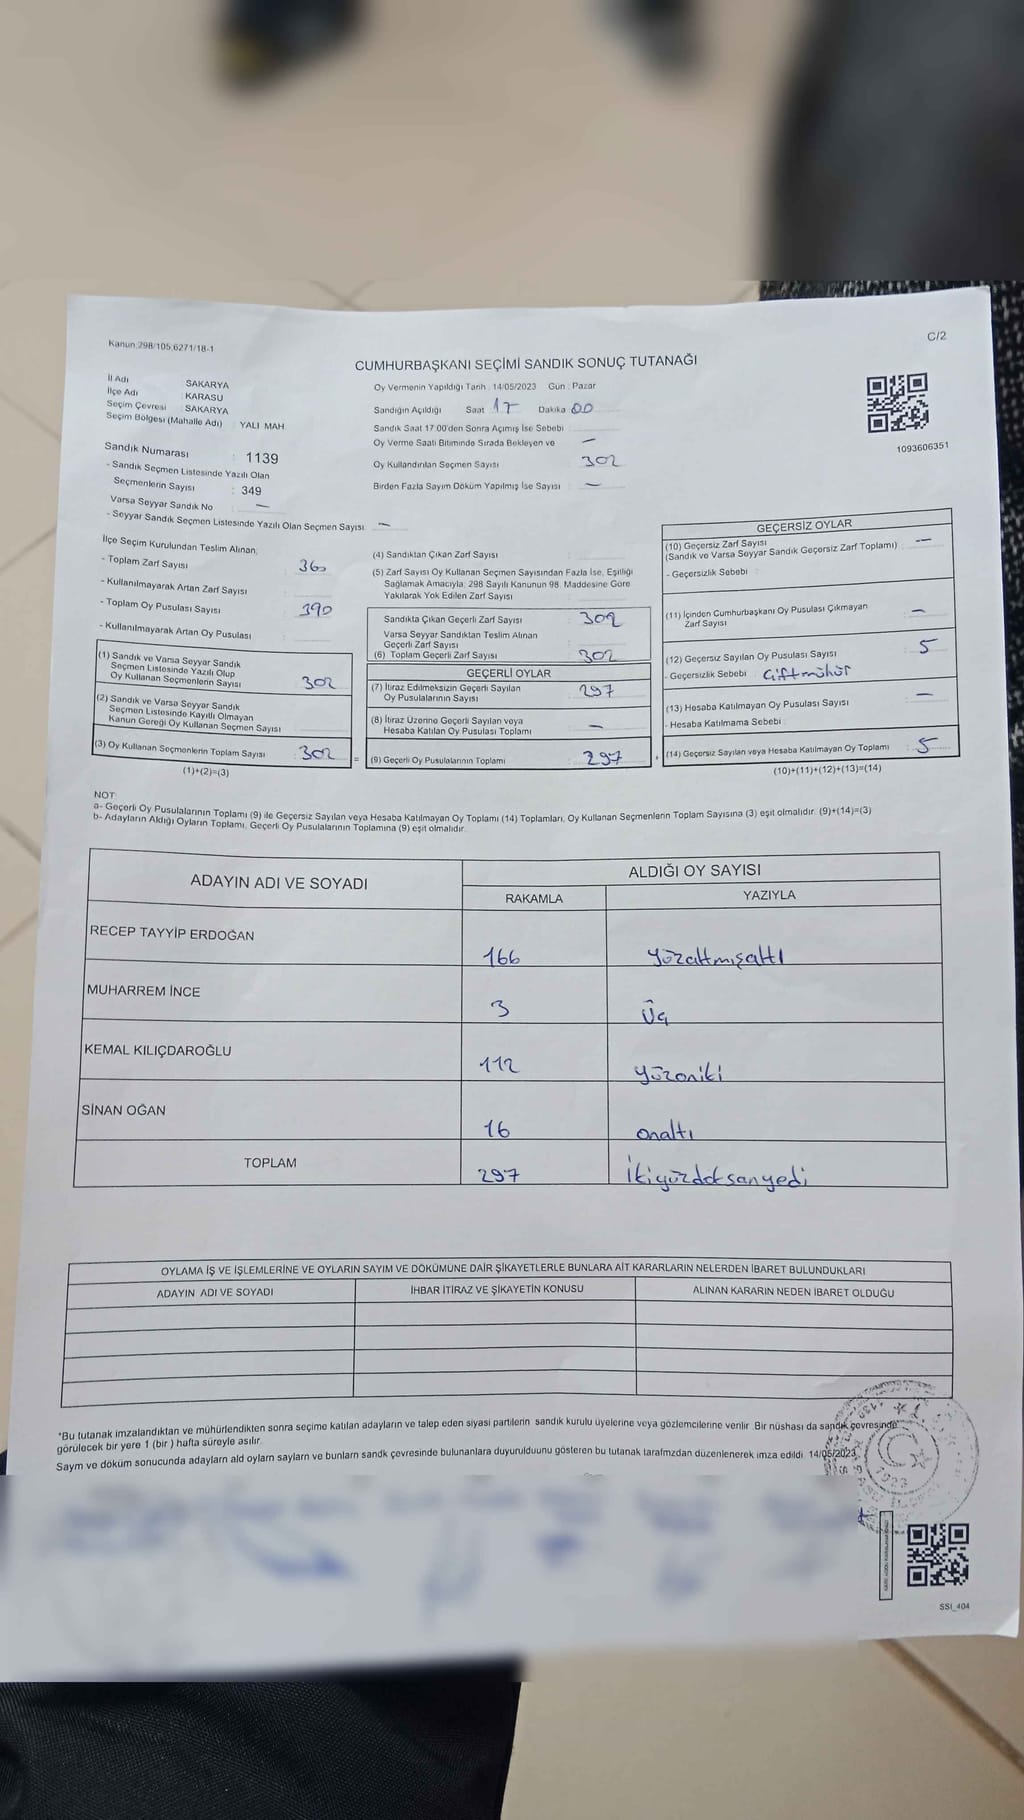 Kanun:298/105,6271/18-1
C/2
CUMHURBAŞKANI SEÇİMİ SANDIK SONUÇ TUTANAĞI
İl Adı : SAKARYA
İlçe Adı : KARASU
Seçim Çevresi : SAKARYA
Seçim Bölgesi (Mahalle Adı) : YALI MAH
Sandık Numarası : 1139
- Sandık Seçmen Listesinde Yazılı Olan
Seçmenlerin Sayısı : 349
Varsa Seyyar Sandık No : —
- Seyyar Sandık Seçmen Listesinde Yazılı Olan Seçmen Sayısı : —
Oy Vermenin Yapıldığı Tarih : 14/05/2023 Gün : Pazar
Sandığın Açıldığı Saat 17 Dakika 00
Sandık Saat 17:00'den Sonra Açımış İse Sebebi :
Oy Verme Saati Bitiminde Sırada Bekleyen ve —
Oy Kullandırılan Seçmen Sayısı : 302
Birden Fazla Sayım Döküm Yapılmış İse Sayısı : —
1093606351
İlçe Seçim Kurulundan Teslim Alınan;
- Toplam Zarf Sayısı : 360
- Kullanılmayarak Artan Zarf Sayısı :
- Toplam Oy Pusulası Sayısı : 390
- Kullanılmayarak Artan Oy Pusulası :
(1) Sandık ve Varsa Seyyar Sandık
Seçmen Listesinde Yazılı Olup
Oy Kullanan Seçmenlerin Sayısı : 302
(2) Sandık ve Varsa Seyyar Sandık
Seçmen Listesinde Kayıtlı Olmayan
Kanun Gereği Oy Kullanan Seçmen Sayısı :
(3) Oy Kullanan Seçmenlerin Toplam Sayısı : 302
(1)+(2)=(3)
(4) Sandıktan Çıkan Zarf Sayısı :
(5) Zarf Sayısı Oy Kullanan Seçmen Sayısından Fazla İse, Eşitliği
Sağlamak Amacıyla; 298 Sayılı Kanunun 98. Maddesine Göre
Yakılarak Yok Edilen Zarf Sayısı :
Sandıkta Çıkan Geçerli Zarf Sayısı : 302
Varsa Seyyar Sandıktan Teslim Alınan
Geçerli Zarf Sayısı :
(6) Toplam Geçerli Zarf Sayısı : 302
GEÇERLİ OYLAR
(7) İtiraz Edilmeksizin Geçerli Sayılan
Oy Pusulalarının Sayısı : 297
(8) İtiraz Üzerine Geçerli Sayılan veya
Hesaba Katılan Oy Pusulası Toplamı : —
= (9) Geçerli Oy Pusulalarının Toplamı : 297 +
GEÇERSİZ OYLAR
(10) Geçersiz Zarf Sayısı
(Sandık ve Varsa Seyyar Sandık Geçersiz Zarf Toplamı) : —
- Geçersizlik Sebebi :
(11) İçinden Cumhurbaşkanı Oy Pusulası Çıkmayan
Zarf Sayısı : —
(12) Geçersiz Sayılan Oy Pusulası Sayısı : 5
- Geçersizlik Sebebi : Çiftmühür
(13) Hesaba Katılmayan Oy Pusulası Sayısı : —
- Hesaba Katılmama Sebebi :
(14) Geçersiz Sayılan veya Hesaba Katılmayan Oy Toplamı : 5
(10)+(11)+(12)+(13)=(14)
NOT:
a- Geçerli Oy Pusulalarının Toplamı (9) ile Geçersiz Sayılan veya Hesaba Katılmayan Oy Toplamı (14) Toplamları, Oy Kullanan Seçmenlerin Toplam Sayısına (3) eşit olmalıdır. (9)+(14)=(3)
b- Adayların Aldığı Oyların Toplamı, Geçerli Oy Pusulalarının Toplamına (9) eşit olmalıdır.
ADAYIN ADI VE SOYADI
ALDIĞI OY SAYISI
RAKAMLA YAZIYLA
RECEP TAYYİP ERDOĞAN 166 yüzaltmışaltı
MUHARREM İNCE 3 Üç
KEMAL KILIÇDAROĞLU 112 yüzoniki
SİNAN OĞAN 16 onaltı
TOPLAM 297 İkiyüzdoksanyedi
OYLAMA İŞ VE İŞLEMLERİNE VE OYLARIN SAYIM VE DÖKÜMÜNE DAİR ŞİKAYETLERLE BUNLARA AİT KARARLARIN NELERDEN İBARET BULUNDUKLARI
ADAYIN ADI VE SOYADI İHBAR İTİRAZ VE ŞİKAYETİN KONUSU ALINAN KARARIN NEDEN İBARET OLDUĞU
*Bu tutanak imzalandıktan ve mühürlendikten sonra seçime katılan adayların ve talep eden siyasi partilerin sandık kurulu üyelerine veya gözlemcilerine verilir. Bir nüshası da sandık çevresinde
görülecek bir yere 1 (bir ) hafta süreyle asılır.
Saym ve döküm sonucunda adaylarn ald oylarn saylarn ve bunlarn sandk çevresinde bulunanlara duyurulduunu gösteren bu tutanak tarafmzdan düzenlenerek imza edildi. 14/05/2023
1923
SSI_404